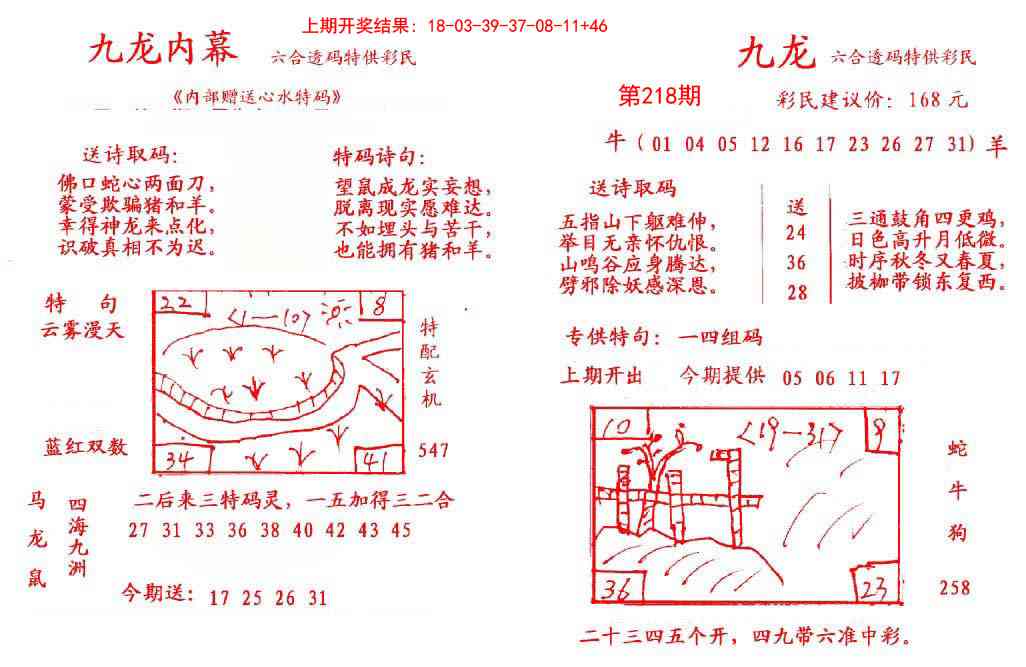 上期开奖结果：18-03-39-37-08-11+46
九龙内幕 六合透码特供彩民
《内部赠送心水特码》
送诗取码：
佛口蛇心两面刀，
蒙受欺骗猪和羊。
幸得神龙来点化，
识破真相不为迟。
特码诗句：
望鼠成龙实妄想，
脱离现实愿难达。
不如埋头与苦干，
也能拥有猪和羊。
特 句
云雾漫天
蓝红双数
22
8
<1—10>
34
41
特配玄机
547
马龙鼠
四海九洲
二后来三特码灵，一五加得三二合
27 31 33 36 38 40 42 43 45
今期送：17 25 26 31
九龙 六合透码特供彩民
第218期 彩民建议价：168元
牛（01 04 05 12 16 17 23 26 27 31）羊
送诗取码
五指山下躯难伸，
举目无亲怀仇恨。
山鸣谷应身腾达，
劈邪除妖感深恩。
送
24
36
28
三通鼓角四更鸡，
日色高升月低微。
时序秋冬又春夏，
披枷带锁东复西。
专供特句：一四组码
上期开出 今期提供 05 06 11 17
10
<19—31>
9
36
23
蛇
牛
狗
258
二十三四五个开，四九带六准中彩。